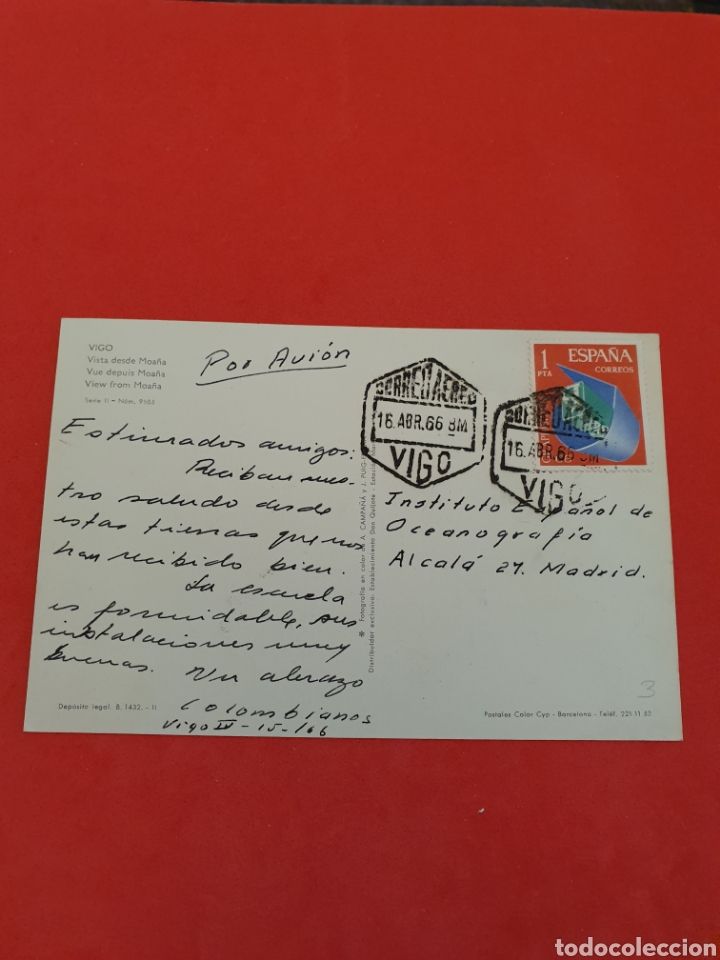 VIGO
Vista desde Moaña
Vue depuis Moaña
View from Moaña
Serie II - Núm. 9505
Por Avión
CORREO AEREO
16. ABR. 66 8M
VIGO
1 PTA
ESPAÑA
CORREOS
CORREO AEREO
16. ABR. 66 8M
VIGO
Estimados amigos:
Reciban nues
tro saludo desde
estas tierras que nos
han recibido bien.
La escuela
es formidable, sus
instalaciones muy
buenas. Un abrazo
Colombianos
Vigo IV-15-/66
Fotografía en color de A. CAMPAÑA y J. PUIG
Distribuidor exclusivo: Establecimiento Don Quijote
Instituto Español de
Oceanografía
Alcalá 27. Madrid.
3
Depósito legal. B. 1432. - II
Postales Color Cyp - Barcelona - Teléf. 221 11 57
todocoleccion